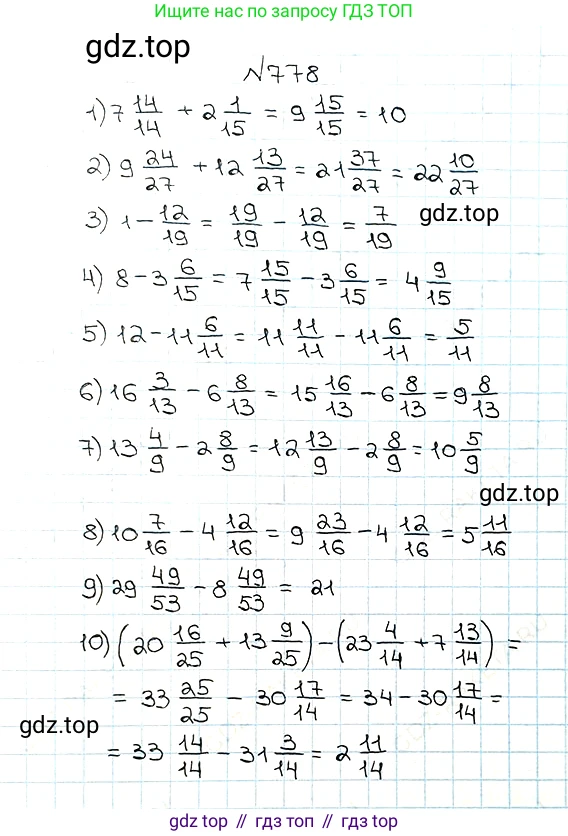 Ищите нас по запросу ГДЗ ТОП
gdz.top
№778
1) 7 14/14 + 2 1/15 = 9 15/15 = 10
2) 9 24/27 + 12 13/27 = 21 37/27 = 22 10/27
3) 1 - 12/19 = 19/19 - 12/19 = 7/19
gdz.top
4) 8 - 3 6/15 = 7 15/15 - 3 6/15 = 4 9/15
5) 12 - 11 6/11 = 11 11/11 - 11 6/11 = 5/11
6) 16 3/13 - 6 8/13 = 15 16/13 - 6 8/13 = 9 8/13
7) 13 4/9 - 2 8/9 = 12 13/9 - 2 8/9 = 10 5/9
gdz.top
8) 10 7/16 - 4 12/16 = 9 23/16 - 4 12/16 = 5 11/16
9) 29 49/53 - 8 49/53 = 21
10) (20 16/25 + 13 9/25) - (23 4/14 + 7 13/14) =
= 33 25/25 - 30 17/14 = 34 - 30 17/14 =
gdz.top
= 33 14/14 - 31 3/14 = 2 11/14
gdz.top // gdz.top // gdz.top